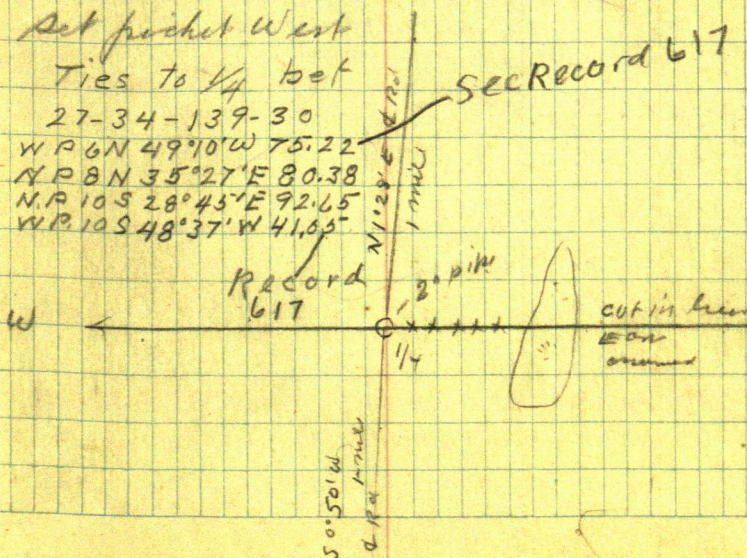 Set picket West
Ties to 1/4 bet
27-34-139-30
W P 6 N 49°10'W 75.22
N P 8 N 35°27'E 80.38
N.P. 10 S 28°45'E 92.65
W P. 10 S 48°37'W 41.65
Sec Record 617
Record
617
N 1°28' E ¢ Rd
1 mile
2" pipe
W
1/4
cut in
E on
S 0°50' W
¢ Rd 1 mile